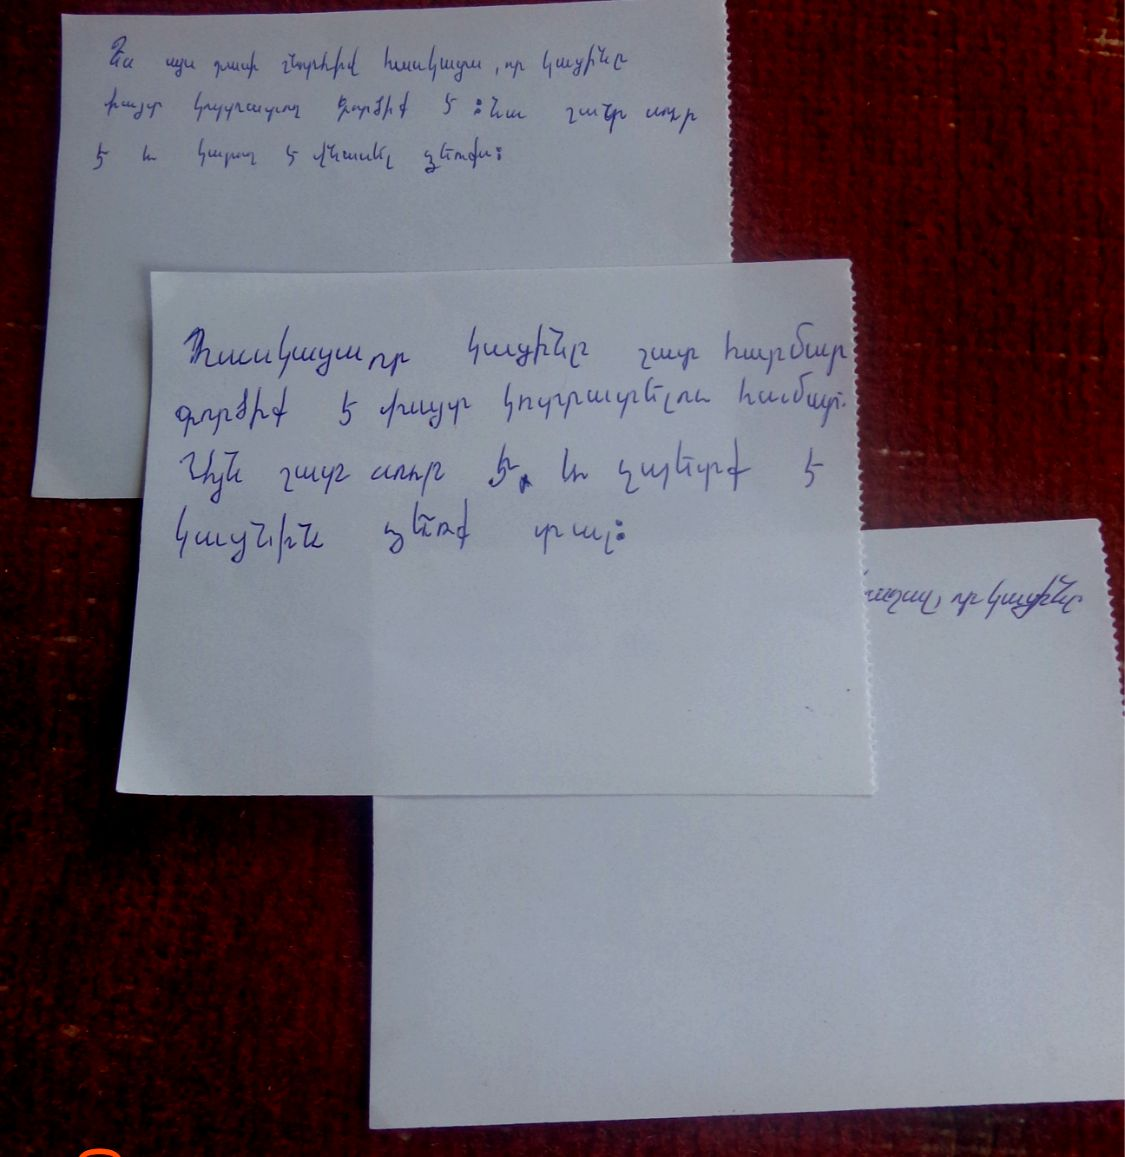 Ես այս դասի շնորհիվ հասկացա, որ կացինը
փայտ կոտրատող գործիք է : Նա շատ սուր
է և կարող է վնասել ձեռքս:
Հասկացա որ կացինը շատ հարմար
գործիք է փայտ կոտրատելու համար.
Այն շատ սուր է, և չպետք է
կացնին ձեռք տալ:
որ կացինը